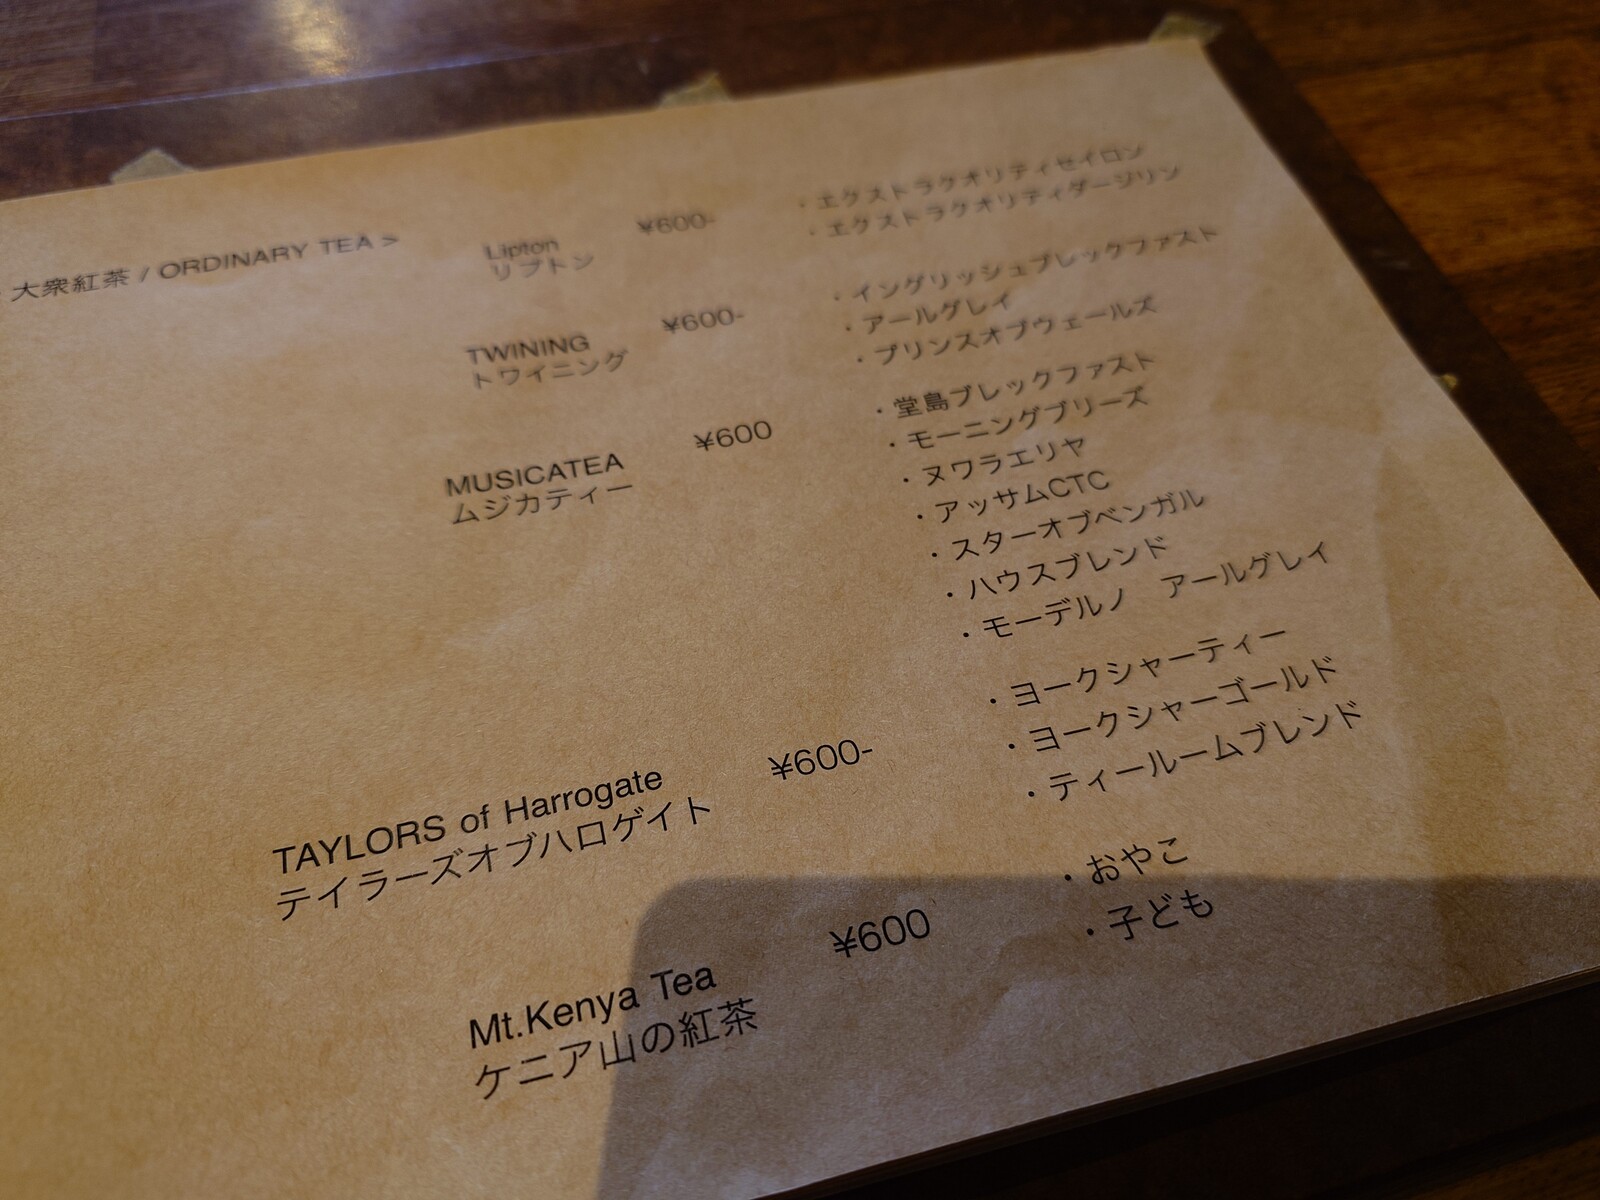 大衆紅茶 / ORDINARY TEA >
Lipton
リプトン
¥600-
・エクストラクオリティセイロン
・エクストラクオリティダージリン
TWINING
トワイニング
¥600-
・イングリッシュブレックファスト
・アールグレイ
・プリンスオブウェールズ
MUSICATEA
ムジカティー
¥600
・堂島ブレックファスト
・モーニングブリーズ
・ヌワラエリヤ
・アッサムCTC
・スターオブベンガル
・ハウスブレンド
・モーデルノ　アールグレイ
TAYLORS of Harrogate
テイラーズオブハロゲイト
¥600-
・ヨークシャーティー
・ヨークシャーゴールド
・ティールームブレンド
Mt.Kenya Tea
ケニア山の紅茶
¥600
・おやこ
・子ども